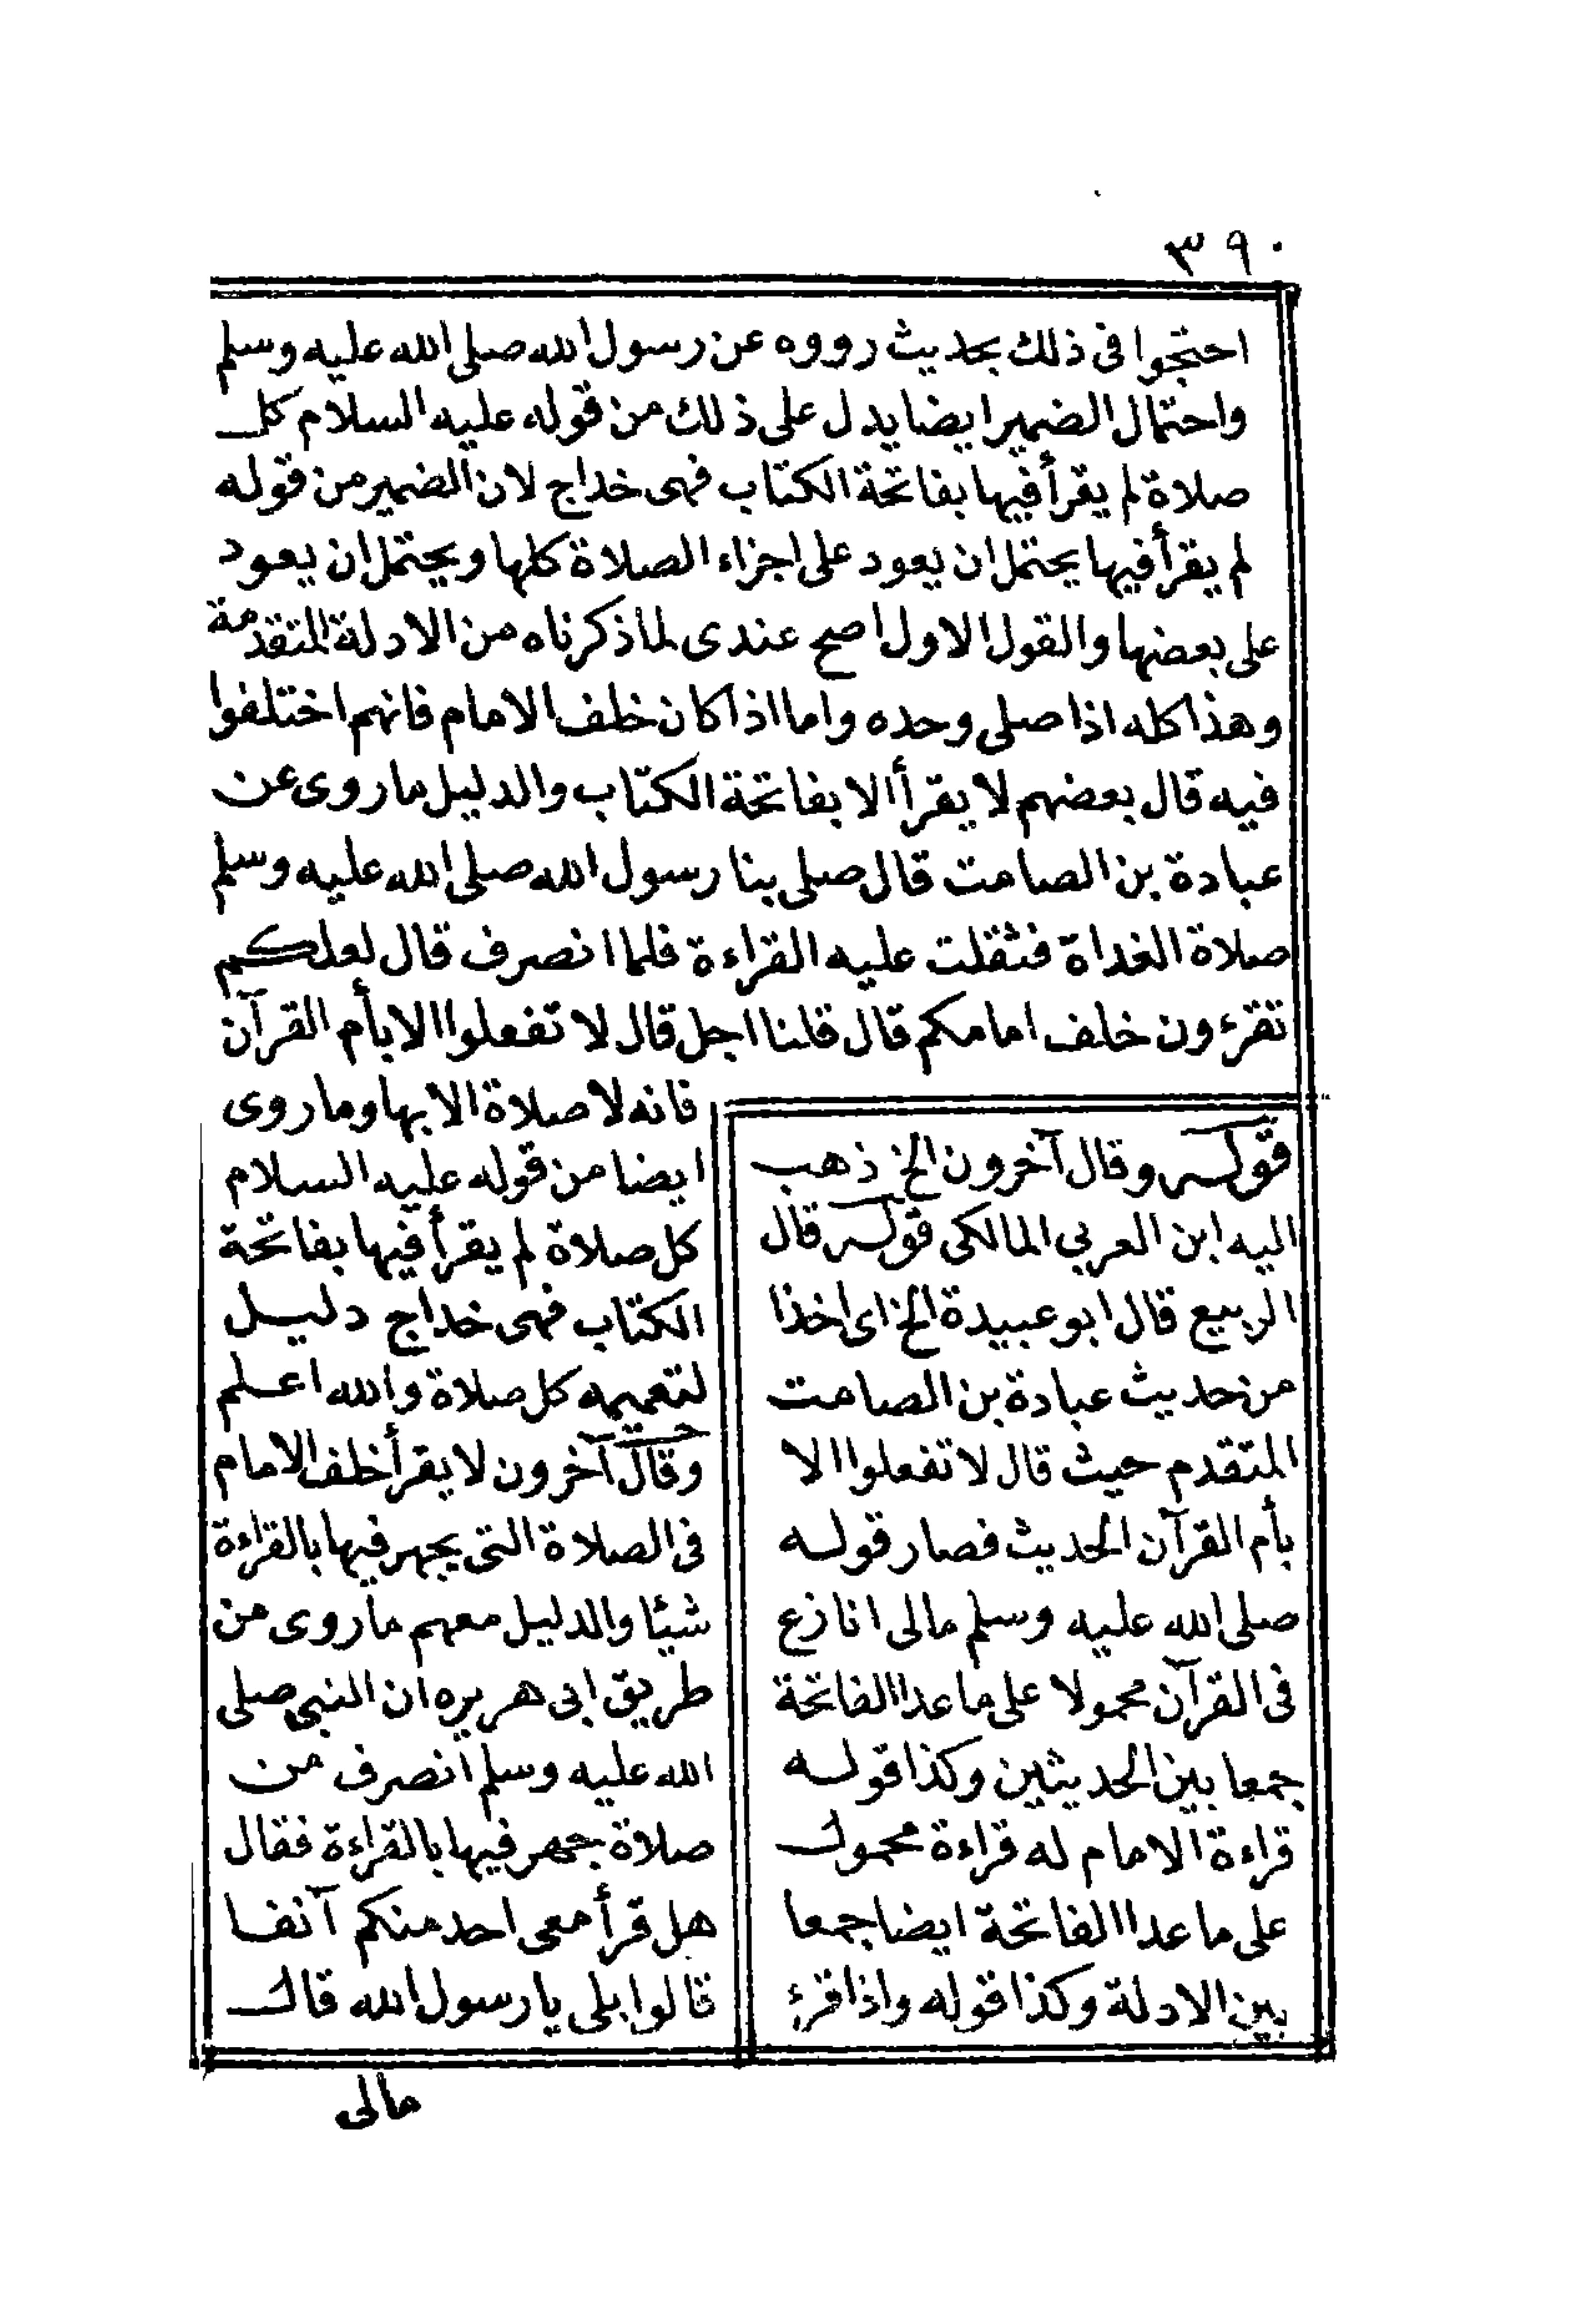 ٣٩٠
احتجوا فى ذلك بحديث رووه عن رسول الله صلى الله عليه وسلم
واحتمال الضمير ايضا يدل على ذلك من قوله عليه السلام كل
صلاة لم يقرأ فيها بفاتحة الكتاب فهى خداج لان الضمير من قوله
لم يقرأ فيها يحتمل ان يعود على اجزاء الصلاة كلها ويحتمل ان يعود
على بعضها والقول الاول اصح عندى لما ذكرناه من الادلة المتقدمة
وهذا كله اذا صلى وحده واما اذا كان خلف الامام فانهم اختلفوا
فيه قال بعضهم لا يقرأ الا بفاتحة الكتاب والدليل ما روى عن
عبادة بن الصامت قال صلى بنا رسول الله صلى الله عليه وسلم
صلاة الغداة فثقلت عليه القراءة فلما انصرف قال لعلكم
تقرءون خلف امامكم قال قلنا اجل قال لا تفعلوا الا بأم القرآن
فانه لا صلاة الا بها وما روى
ايضا من قوله عليه السلام
كل صلاة لم يقرأ فيها بفاتحة
الكتاب فهى خداج دليل
لتعميمه كل صلاة والله اعلم
وقال آخرون لا يقرأ خلف الامام
فى الصلاة التى يجهر فيها بالقراءة
شيئا والدليل معهم ما روى من
طريق ابى هريره ان النبى صلى
الله عليه وسلم انصرف من
صلاة جهر فيها بالقراءة فقال
هل قرأ معى احد منكم آنفا
قالوا بلى يا رسول الله قال
قوله وقال آخرون الخ ذهب
اليه ابن العربى المالكى قوله قال
الربيع قال ابو عبيدة الخ اى اخذا
من حديث عبادة بن الصامت
المتقدم حيث قال لا تفعلوا الا
بأم القرآن الحديث فصار قوله
صلى الله عليه وسلم مالى انازع
فى القرآن محمولا على ما عدا الفاتحة
جمعا بين الحديثين وكذا قوله
قراءة الامام له قراءة محمول
على ما عدا الفاتحة ايضا جمعا
بين الادلة وكذا قوله واذا قرئ
مالى